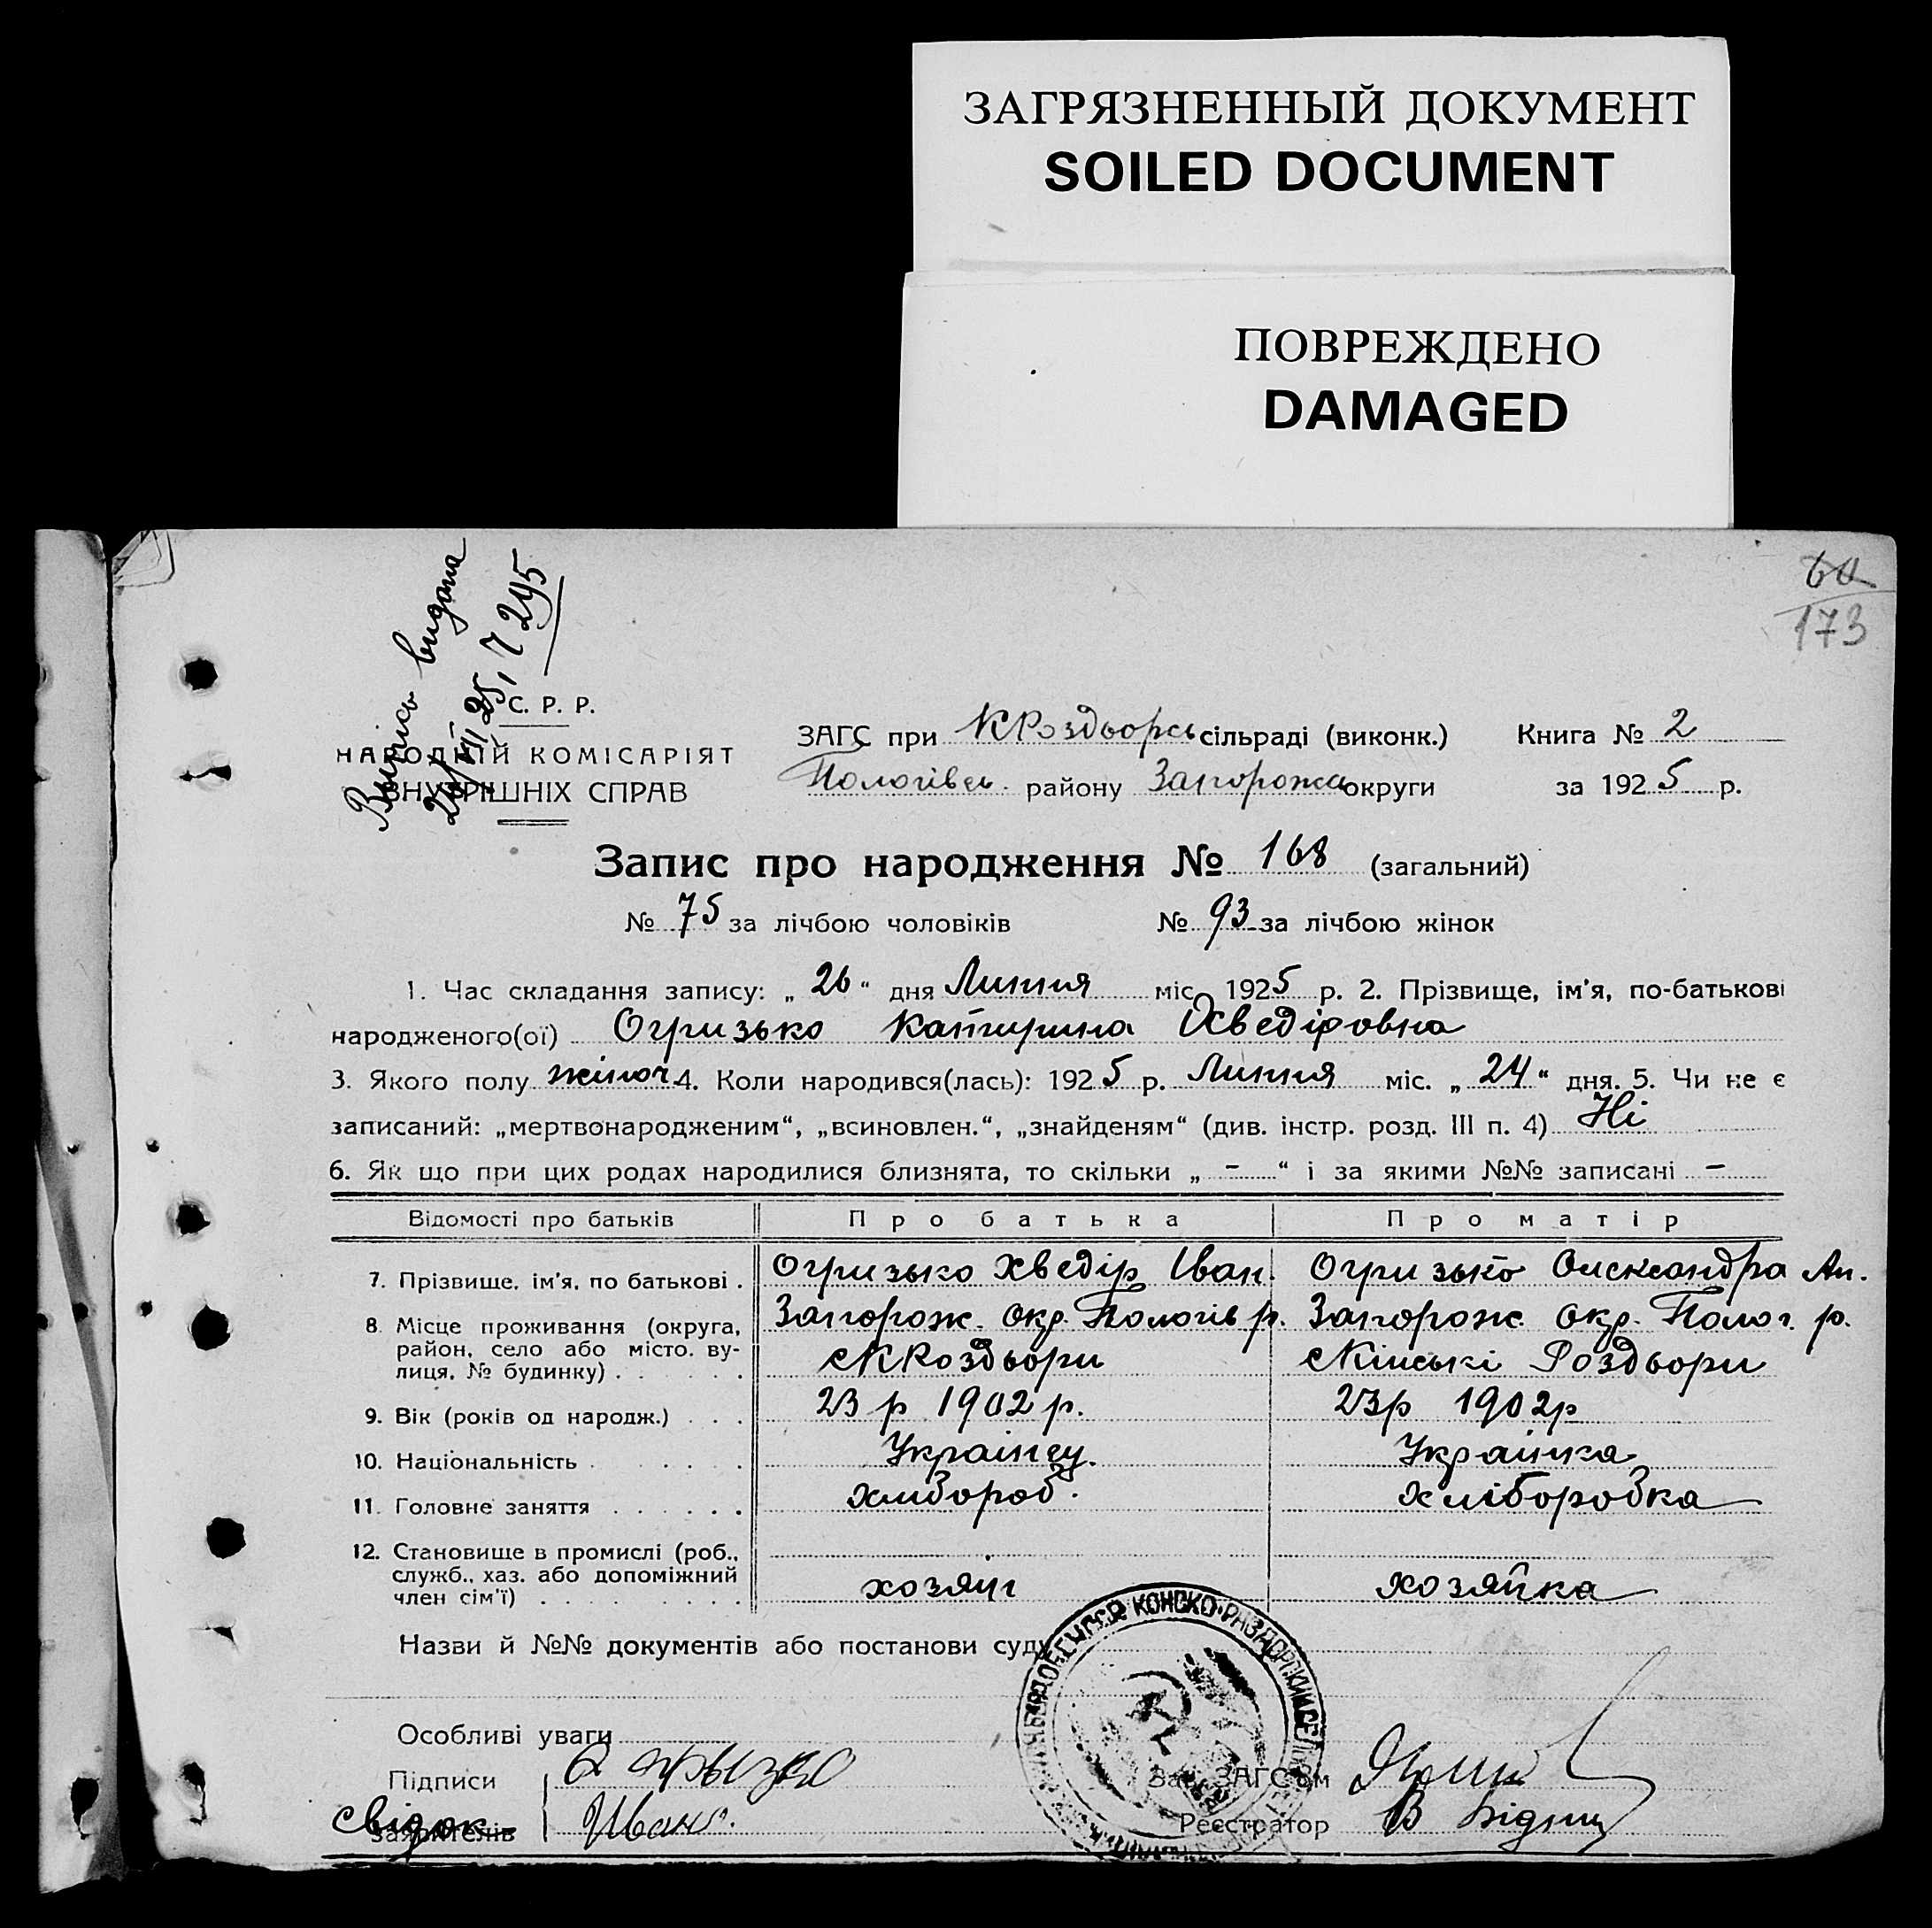 ЗАГРЯЗНЕННЫЙ ДОКУМЕНТ
SOILED DOCUMENT
ПОВРЕЖДЕНО
DAMAGED
60
173
Випись видана
26/VII 25, Ч 295
С. Р. Р.
НАРОДНІЙ КОМІСАРІЯТ
ВНУТРІШНІХ СПРАВ
ЗАГС при К Роздорсь сільраді (виконк.) Книга № 2
Пологівсь. району Запорожсь округи за 1925 р.
Запис про народження № 168 (загальний)
№ 75 за лічбою чоловіків № 93 за лічбою жінок
1. Час складання запису: „ 26 “ дня Липня міс. 1925 р. 2. Прізвище, ім'я, по-батькові
народженого(ої) Огризько Катирина Хведіровна
3. Якого полу жіноч. 4. Коли народився(лась): 1925 р. Липня міс. „ 24 “ дня. 5. Чи не є
записаний: „мертвонародженим“, „всиновлен.“, „знайденям“ (див. інстр. розд. III п. 4) Ні
6. Як що при цих родах народилися близнята, то скільки „ - “ і за якими №№ записані -
Відомості про батьків Про батька Про матір
7. Прізвище, ім'я, по батькові . Огризько Хведір Іван. Огризько Олександра Ан.
8. Місце проживання (округа, Запорож. Окр. Пологів р. Запорож. Окр. Полог. р.
район, село або місто, ву- с К Роздьори с Кінські Роздьори
лиця, № будинку) . . . . . .
9. Вік (років од народж.) . . . 23 р 1902 р. 23 р 1902 р
10. Національність . . . . . . . Українец. Українка
11. Головне заняття . . . . . . хлибороб. хліборобка
12. Становище в промислі (роб.,
служб., хаз. або допоміжний хозяин хозяйка
член сім'ї) . . . . . . . . .
Назви й №№ документів або постанови суду
КОНСКО-РАЗДОРСКИЙ СЕЛЬ
Особливі уваги
Підписи Огрызко
свідок - заявителів Иван.
Зав. ЗАГС'ом
Реєстратор В